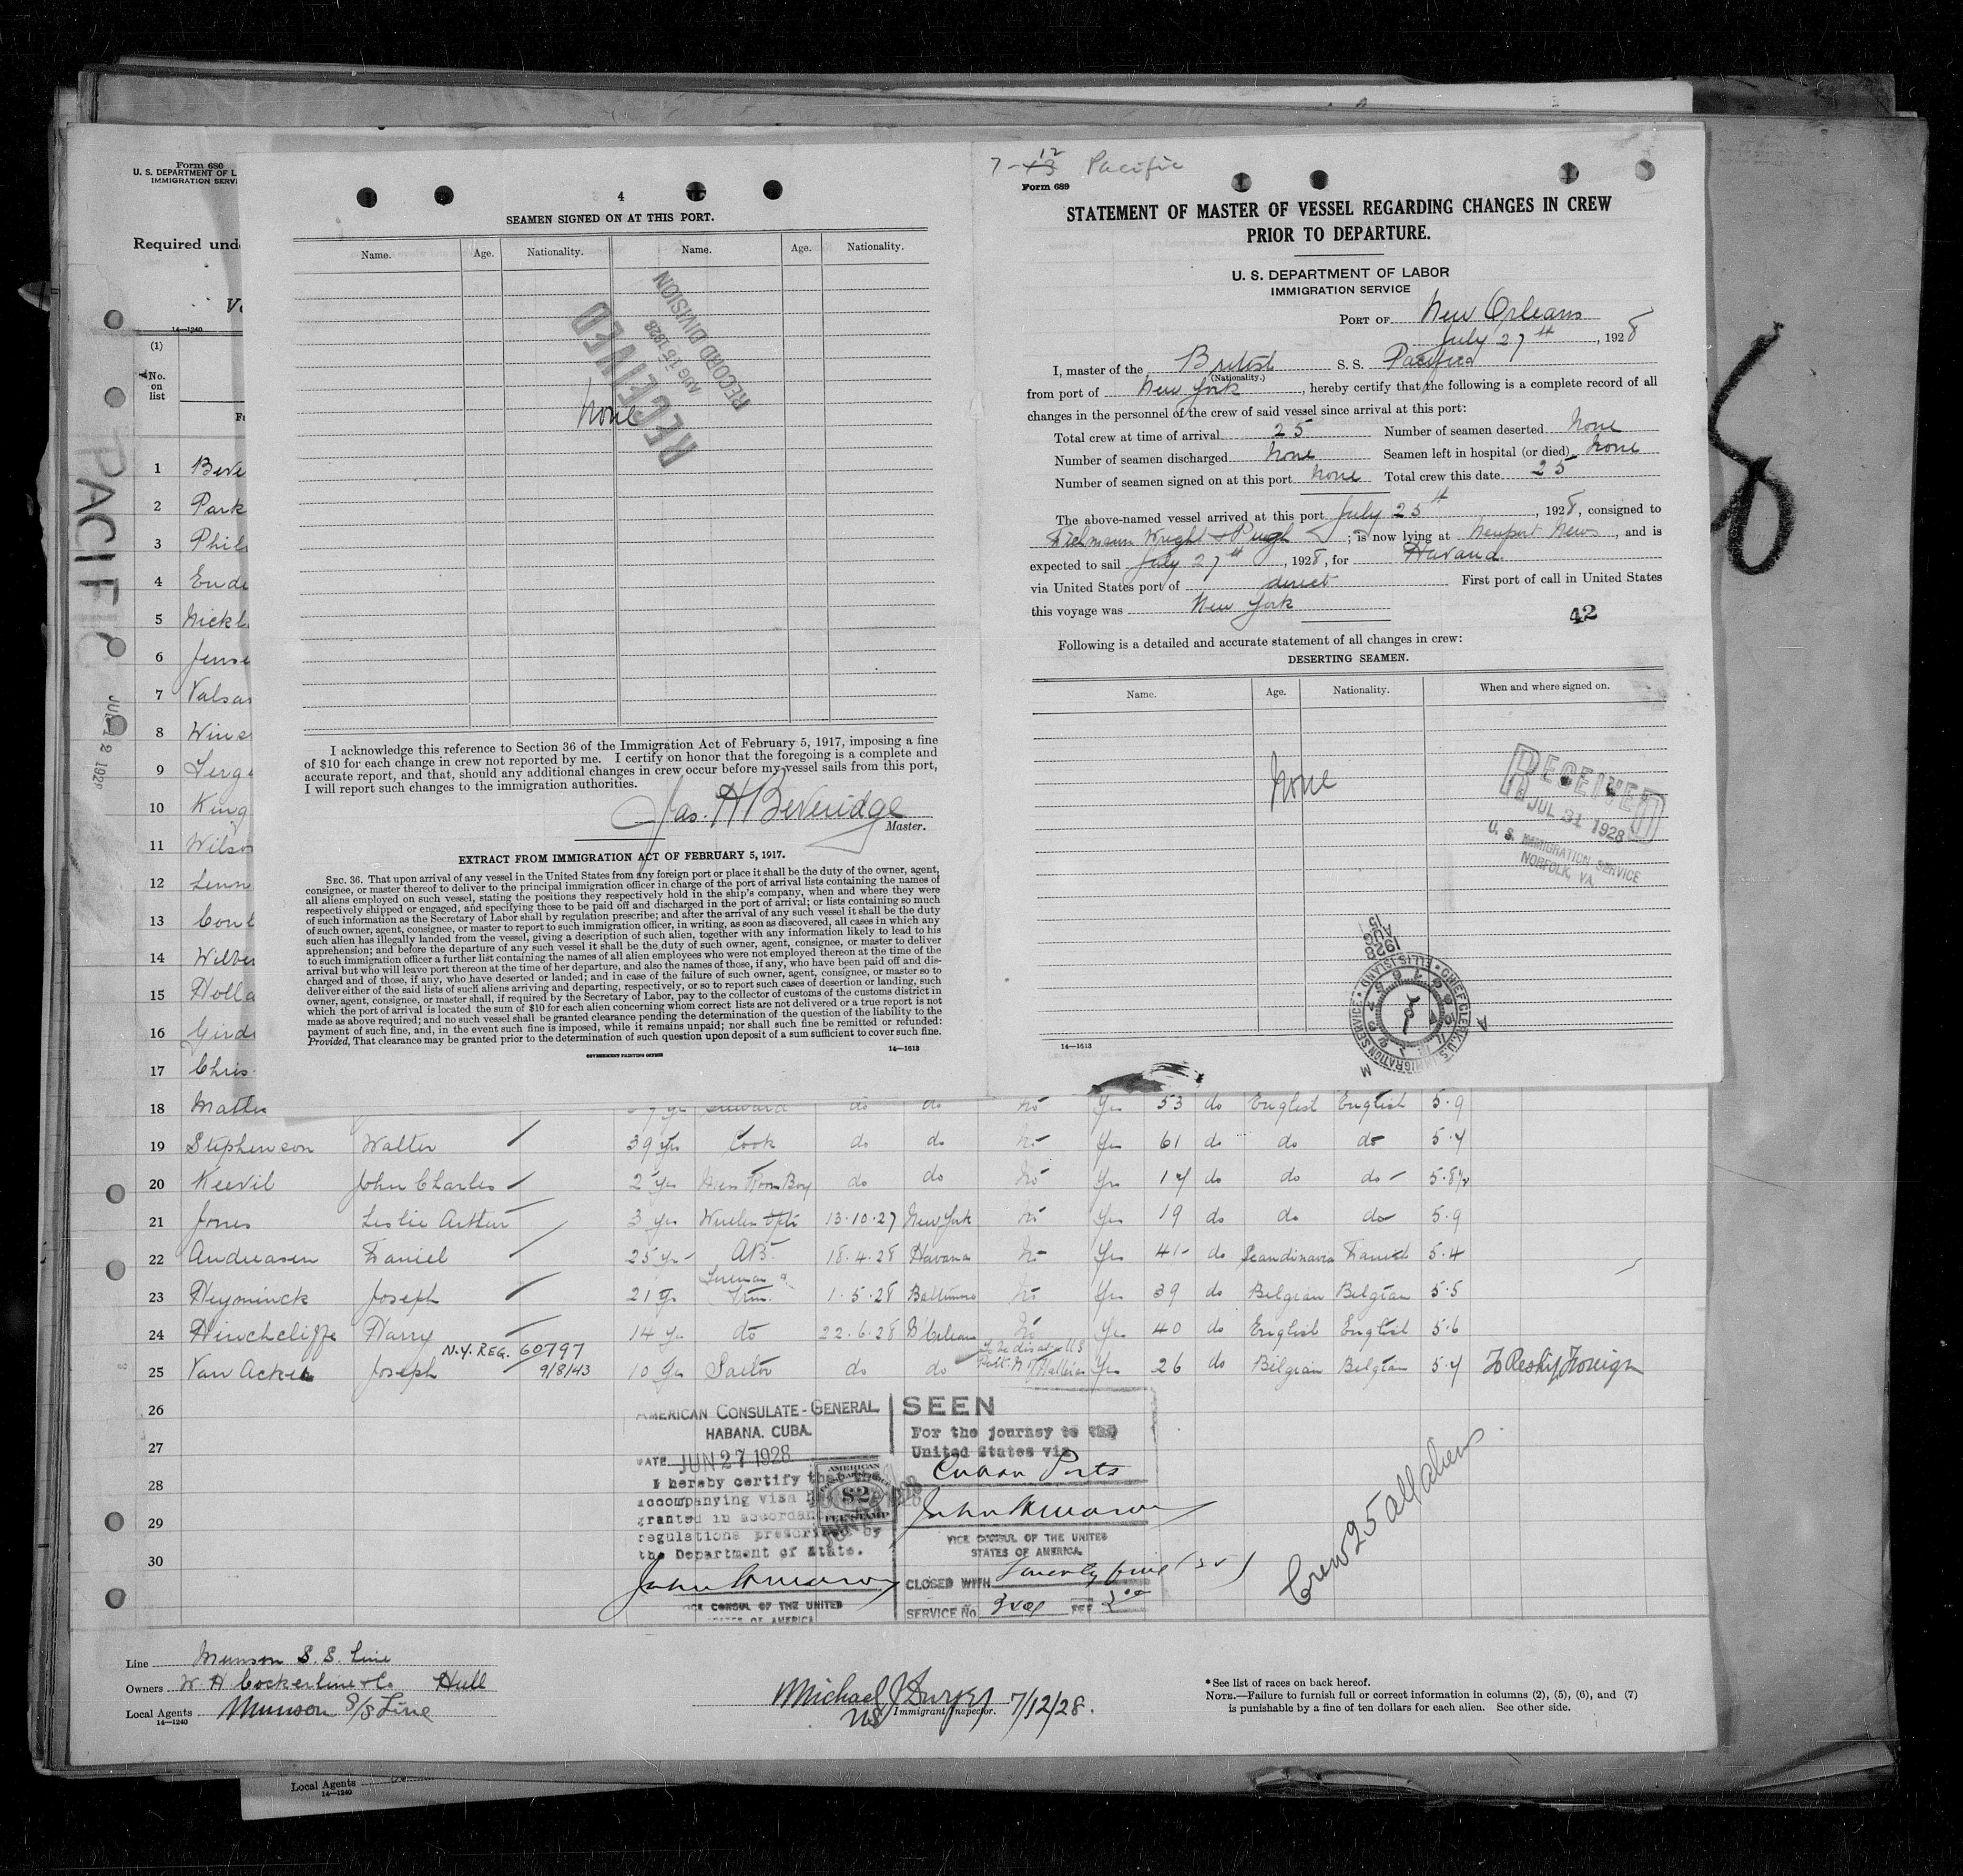 Form 680
U. S. DEPARTMENT OF L
IMMIGRATION SERVI
Required und
14—1240
(1)
No.
on
list
PACIFIC
1 Beve
2 Park
3 Phil
4 Ende
5 Nickl
6 Jense
7 Valsa
8 Wins
9
10 King
11 Wilso
12 Lenn
13
14 Wilber
15 Holla
16
17 Chris
18 Matte
4
SEAMEN SIGNED ON AT THIS PORT.
Name. Age. Nationality. Name. Age. Nationality.
RECEIVED
AUG 15 1928
RECORD DIVISION
None
I acknowledge this reference to Section 36 of the Immigration Act of February 5, 1917, imposing a fine
of $10 for each change in crew not reported by me. I certify on honor that the foregoing is a complete and
accurate report, and that, should any additional changes in crew occur before my vessel sails from this port,
I will report such changes to the immigration authorities.
Jas. H Beveridge
Master.
EXTRACT FROM IMMIGRATION ACT OF FEBRUARY 5, 1917.
SEC. 36. That upon arrival of any vessel in the United States from any foreign port or place it shall be the duty of the owner, agent,
consignee, or master thereof to deliver to the principal immigration officer in charge of the port of arrival lists containing the names of
all aliens employed on such vessel, stating the positions they respectively hold in the ship's company, when and where they were
respectively shipped or engaged, and specifying those to be paid off and discharged in the port of arrival; or lists containing so much
of such information as the Secretary of Labor shall by regulation prescribe; and after the arrival of any such vessel it shall be the duty
of such owner, agent, consignee, or master to report to such immigration officer, in writing, as soon as discovered, all cases in which any
such alien has illegally landed from the vessel, giving a description of such alien, together with any information likely to lead to his
apprehension; and before the departure of any such vessel it shall be the duty of such owner, agent, consignee, or master to deliver
to such immigration officer a further list containing the names of all alien employees who were not employed thereon at the time of the
arrival but who will leave port thereon at the time of her departure, and also the names of those, if any, who have been paid off and dis-
charged and of those, if any, who have deserted or landed; and in case of the failure of such owner, agent, consignee, or master so to
deliver either of the said lists of such aliens arriving and departing, respectively, or so to report such cases of desertion or landing, such
owner, agent, consignee, or master shall, if required by the Secretary of Labor, pay to the collector of customs of the customs district in
which the port of arrival is located the sum of $10 for each alien concerning whom correct lists are not delivered or a true report is not
made as above required; and no such vessel shall be granted clearance pending the determination of the question of the liability to the
payment of such fine, and, in the event such fine is imposed, while it remains unpaid; nor shall such fine be remitted or refunded:
Provided, That clearance may be granted prior to the determination of such question upon deposit of a sum sufficient to cover such fine.
GOVERNMENT PRINTING OFFICE 14—1613
7-12 Pacific
Form 689
STATEMENT OF MASTER OF VESSEL REGARDING CHANGES IN CREW
PRIOR TO DEPARTURE.
U. S. DEPARTMENT OF LABOR
IMMIGRATION SERVICE
PORT OF New Orleans
July 27th, 1928
I, master of the British S. S. Pacific
(Nationality.)
from port of New York, hereby certify that the following is a complete record of all
changes in the personnel of the crew of said vessel since arrival at this port:
Total crew at time of arrival 25 Number of seamen deserted None
Number of seamen discharged None Seamen left in hospital (or died) None
Number of seamen signed on at this port None Total crew this date 25
The above-named vessel arrived at this port July 25th, 1928, consigned to
Wright & Pugh; is now lying at Newport News, and is
expected to sail July 27th, 1928, for Havana
via United States port of direct First port of call in United States
this voyage was New York
42
Following is a detailed and accurate statement of all changes in crew:
DESERTING SEAMEN.
Name. Age. Nationality. When and where signed on.
None
RECEIVED
JUL 31 1928
U. S. IMMIGRATION SERVICE
NORFOLK, VA.
1928 AUG 15
CHIEF CLERK U.S. IMMIGRATION SERVICE ELLIS ISLAND
14—1613
Steward do do No Yes 53 do English English 5.9
19 Stephenson Walter 39 yrs Cook do do No Yes 61 do do do 5.4
20 Keevil John Charles 2 yrs Mess Room Boy do do No Yes 17 do do do 5.8½
21 Jones Leslie Arthur 3 yrs Wireless Optr 13.10.27 New York No Yes 19 do do do 5.9
22 Andreasen Daniel 25 yrs AB. 18.4.28 Havana No Yes 41 do Scandinavia Danish 5.4
23 Heyminck Joseph 21 yrs Fireman & Trim. 1.5.28 Baltimore No Yes 39 do Belgian Belgian 5.5
24 Hinchcliffe Harry 14 yrs do 22.6.28 N Orleans No Yes 40 do English English 5.6
N.Y. REG. 60797
9/8/43
25 Van Acker Joseph 10 yrs Sailor do do Yes 26 do Belgian Belgian 5.4 To Reship Foreign
26
27
28
29
30
AMERICAN CONSULATE-GENERAL
HABANA. CUBA.
DATE JUN 27 1928
I hereby certify that the
accompanying visa
granted in accordance
regulations prescribed by
the Department of State.
VICE CONSUL OF THE UNITED
STATES OF AMERICA
AMERICAN
$2
FEE STAMP
SEEN
For the journey to the
United States via
Cuban Ports
VICE CONSUL OF THE UNITED
STATES OF AMERICA.
CLOSED WITH Twenty five (25)
SERVICE No. FEE 2.00
Crew 25 all aliens
Line Munson S. S. Line
Owners W. H Cockerline & Co Hull
Local Agents Munson S/S Line
14—1240
Michael J Dwyer 7/12/28.
Immigrant Inspector.
*See list of races on back hereof.
NOTE.—Failure to furnish full or correct information in columns (2), (5), (6), and (7)
is punishable by a fine of ten dollars for each alien. See other side.
Local Agents
14—1240